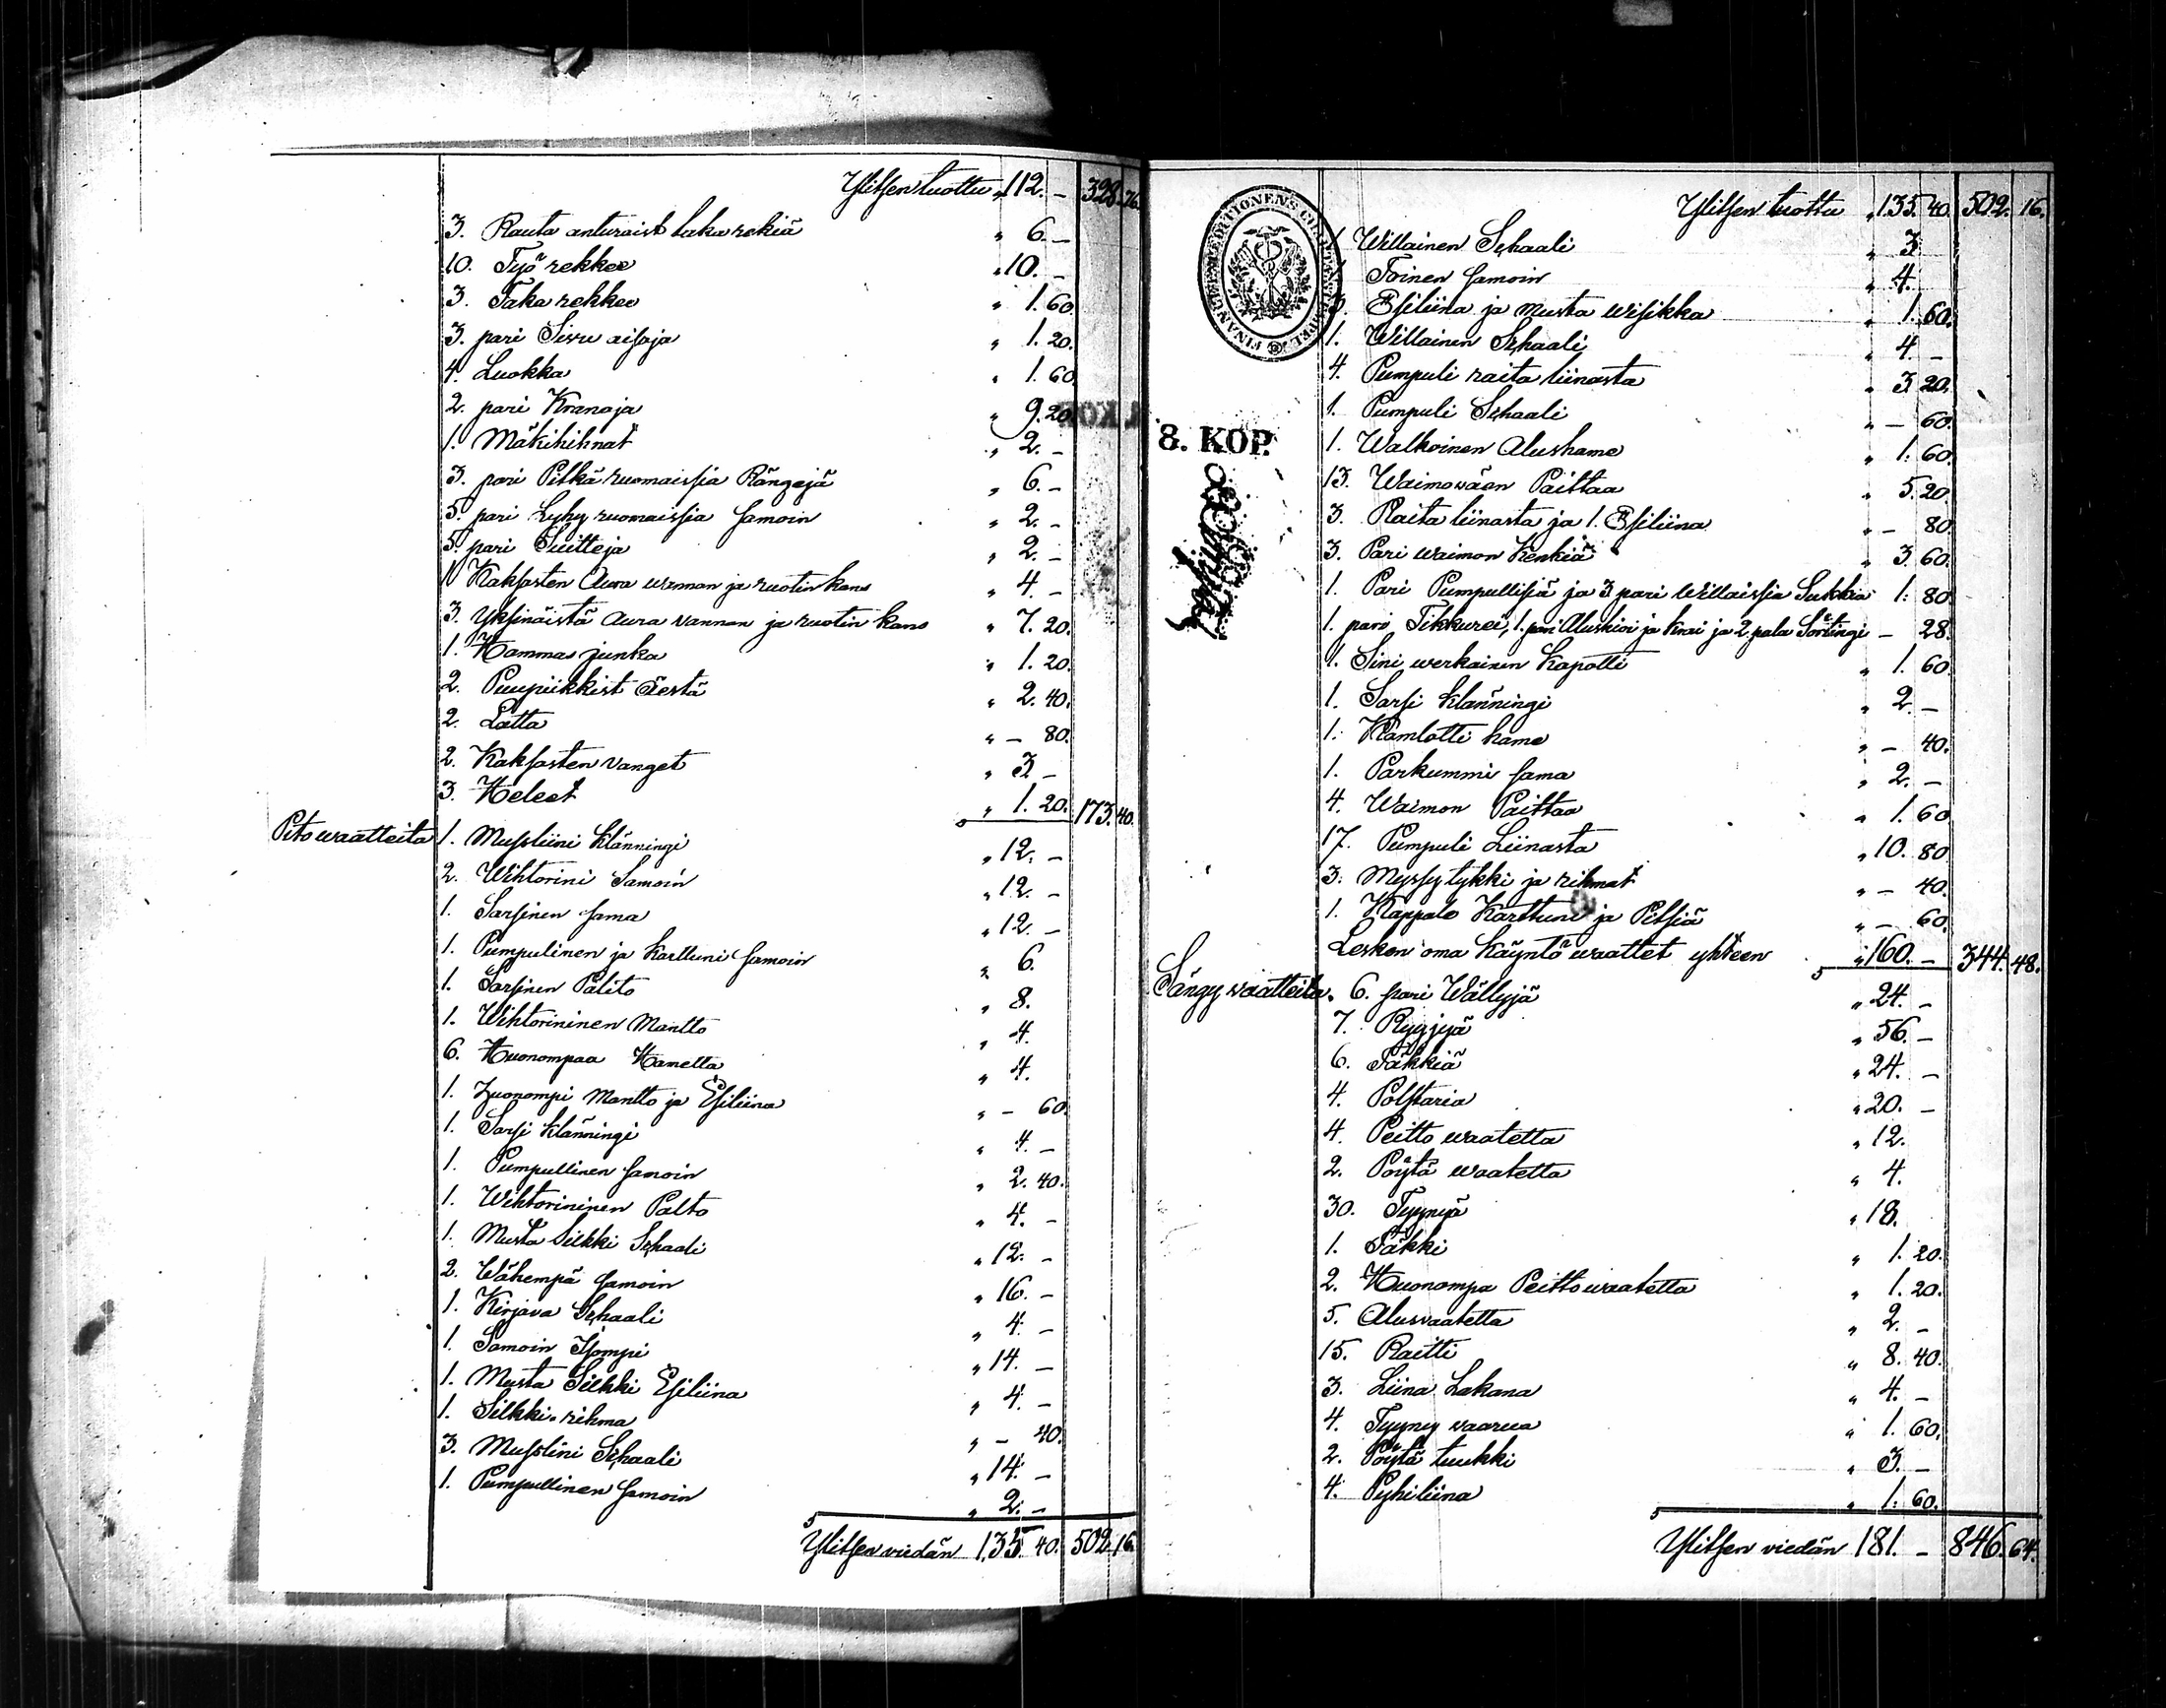 Ylitsen tuottu „ 112. – 328. 76.
3. Rauta anturaist laka rekiä „ 6. –
10. Työ rekkee „ 10. –
3. Taka rekkee „ 1. 60.
3. pari Sivu aisoja „ 1. 20.
4. Luokka „ 1. 60.
2. pari Kranaja „ 9. 20.
1. Mäkihihnat „ 2. –
3. pari Pitkä ruomaissia Rängejä „ 6. –
5. pari Lyhy ruomaissia samoin „ 2. –
5. pari Suitteja „ 2. –
1 Kaksasten Aura wannan ja ruotin kans „ 4. –
3. Yksinäistä Aura vannan ja ruotin kans „ 7. 20.
1. Hammas junka „ 1. 20.
2. Puupiikkist Äestä „ 2. 40.
2. Latta „ – 80.
2. Kaksasten vanget „ 3 –
3. Heleet „ 1. 20. 173. 40.
Pito waatteita 1. Musliini Klänningi „ 12. –
2. Wihtorini Samoin „ 12. –
1. Sarsinen sama „ 12. –
1. Pumpulinen ja Karttuni samoin „ 6.
1. Sarsinen Palito „ 8.
1. Wihtorininen Mantto „ 4.
6. Huonompaa Hametta „ 4.
1. Huonompi Mantto ja Esiliina „ – 60.
1. Sarsi Klänningi „ 4. –
1. Pumpullinen samoin „ 2. 40.
1. Wihtorininen Palto „ 4. –
1. Musta Silkki Schaali „ 12. –
2. Wähempä samoin „ 16. –
1. Kirjava Schaali „ 4. –
1. Samoin Isompi „ 14. –
1. Musta Silkki Esiliina „ 4. –
1. Silkki rihma „ – 40.
3. Muslini Schaali „ 14. –
1. Pumpullinen samoin „ 2. –
Ylitsen viedän 135. 40. 502. 16.
FINANCE EXPEDITIONENS
8. KOP.
Ylitsen tuottu „ 135. 40. 502. 16.
1. Willainen Schaali „ 3
1. Toinen samoin „ 4.
3. Esiliina ja musta wisikka „ 1. 60.
1. Willainen Schaali „ 4. –
4. Pumpuli raita liinasta „ 3 20.
1. Pumpuli Schaali „ – 60.
1. Walkoinen Alushame „ 1. 60.
13. Waimowäen Paittaa „ 5. 20.
3. Raita liinasta ja 1. Esiliina „ – 80.
3. Pari waimon Kenkiä „ 3 60.
1. Pari Pumpullisiä ja 3 pari Willaissia Sukkia 1. 80.
1. pari Tikkurei, 1. pari Aluskioi ja Knai ja 2 pala Sortingi – 28.
1. Sini werkainen Kapotti „ 1. 60
1. Sarsi Klänningi „ 2. –
1. Kamlotti hame „ – 40.
1. Parkummi sama „ 2. –
4. Waimon Paittaa „ 1. 60
17. Pumpuli Liinasta „ 10. 80
3. Myssy tykki ja rihmat „ – 40.
1. Kappale Karttuni ja Pitsiä „ – 60.
Lesken oma Käyntö waattet yhteen „ 160. – 344. 48.
Sängy waatteita. 6. pari Wällyjä „ 24. –
7. Ryyjyä „ 56. –
6. Päkkiä „ 24. –
4. Polstaria „ 20. –
4. Peitto waatetta „ 12.
2. Pöytä waatetta „ 4.
30. Tyynyä „ 18.
1. Päkki „ 1. 20.
2. Huonompa Peitto waatetta „ 1. 20.
5. Alusvaatetta „ 2. –
15. Raitti „ 8. 40.
3. Liina Lakana „ 4. –
4. Tyyny waarua „ 1. 60.
2. Pöytä tuukki „ 3. –
4. Pyhiliina „ 1. 60.
Ylitsen viedän 181. – 846. 64.